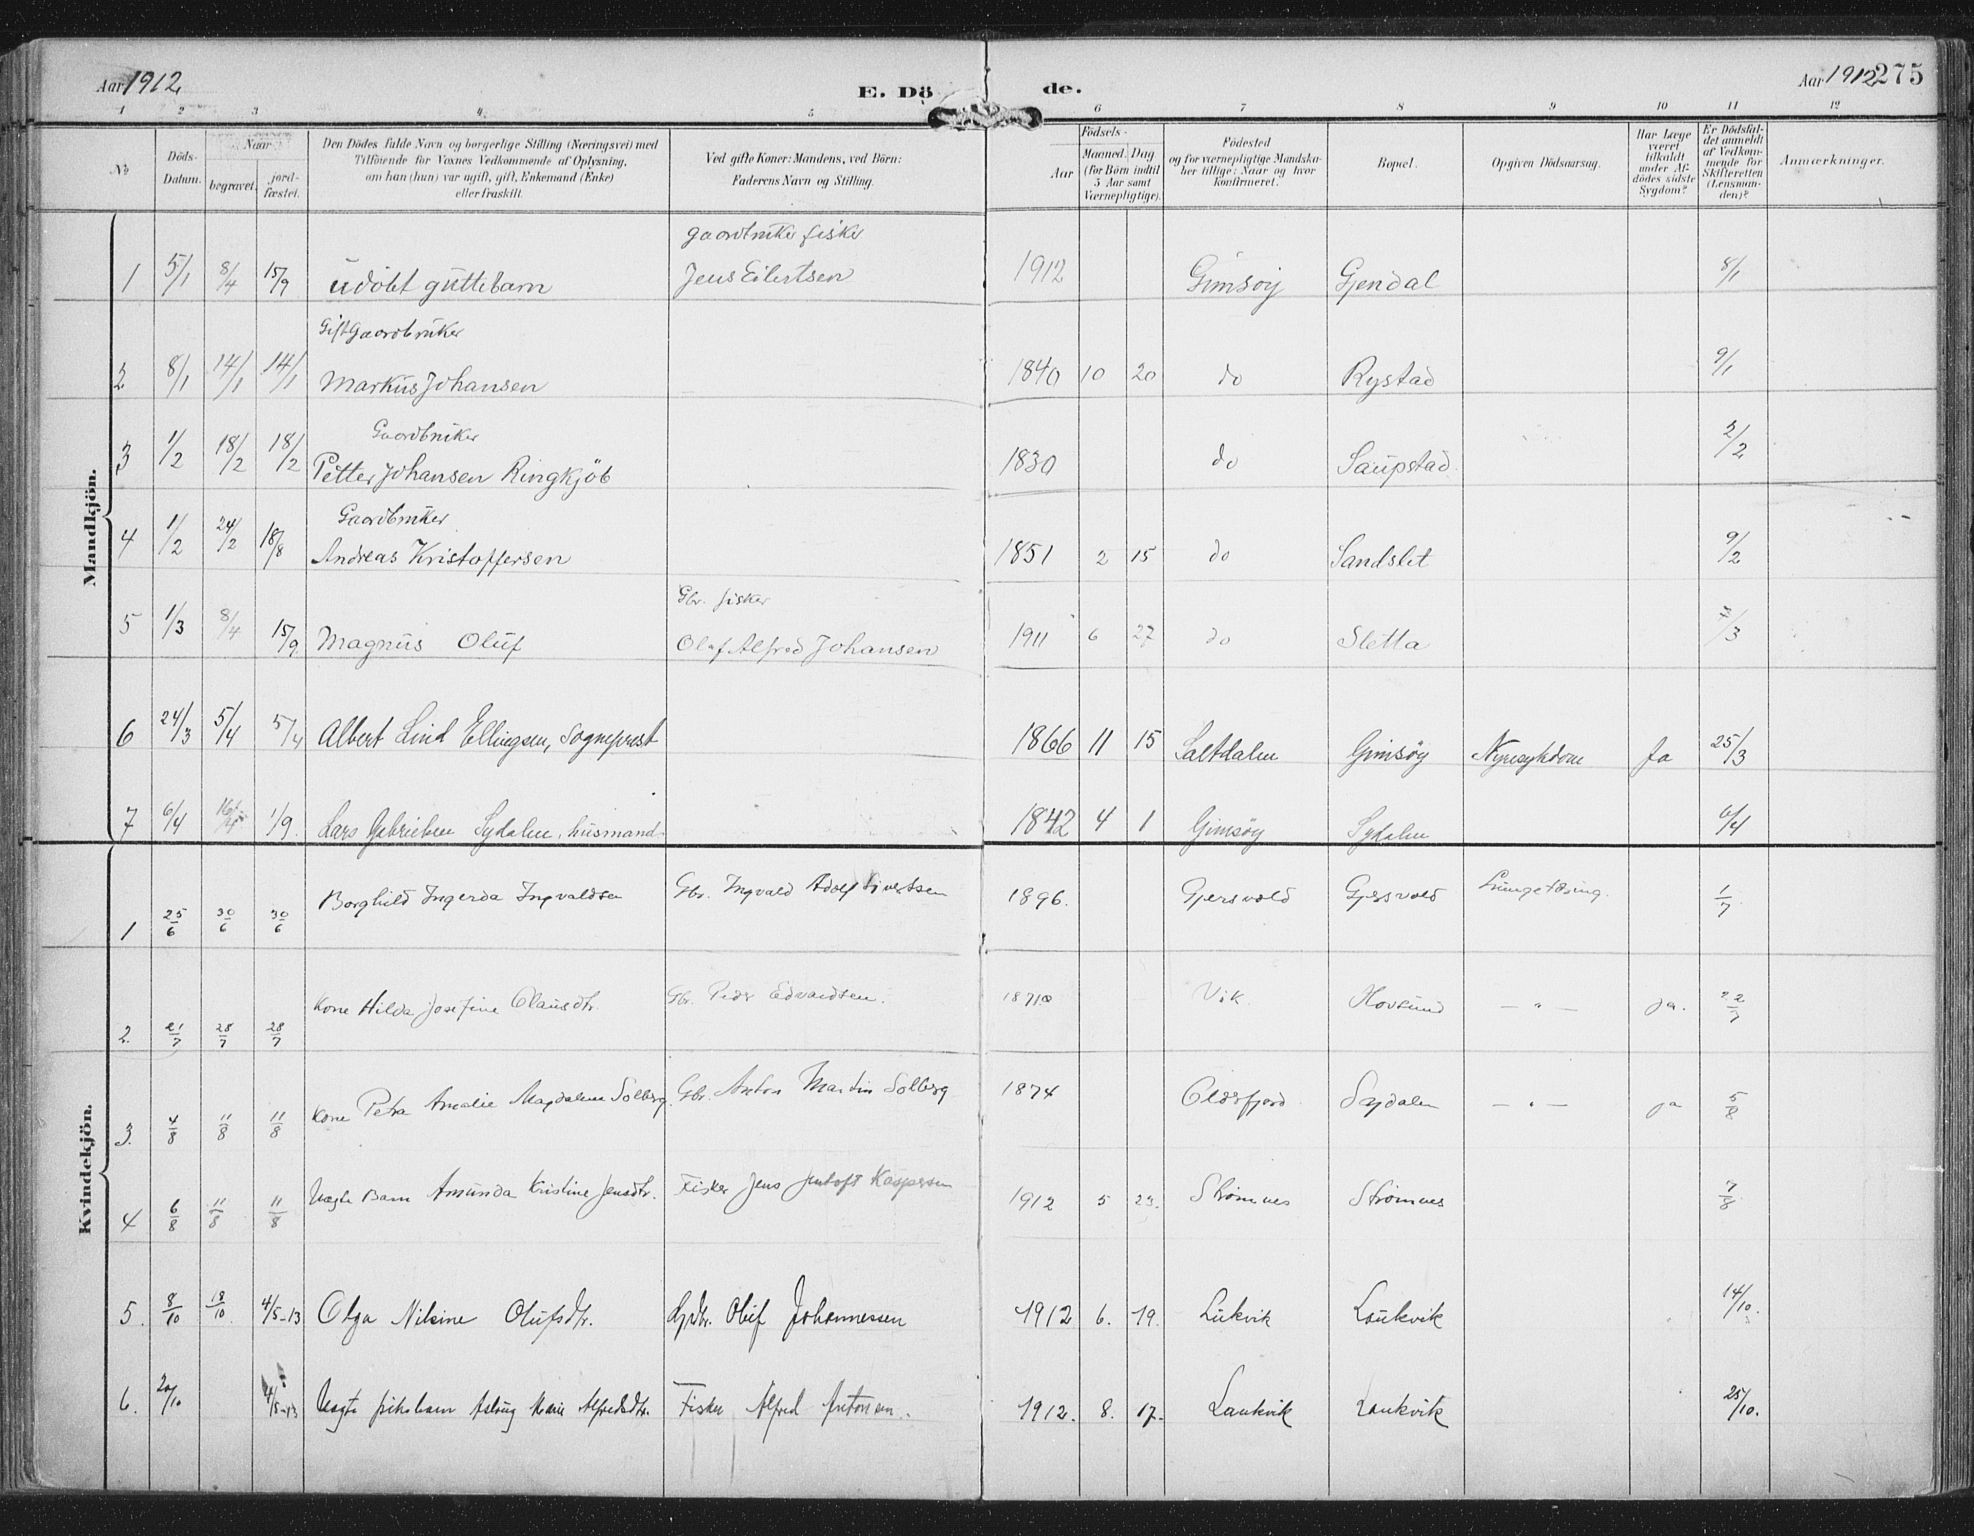 Aar 1912
E. Dö
de.
Aar 1912 275
1 2 3 4. 5 6 7 8 9 10 11 12
No
Döds-Datum.
Naar
begravet.
jord-fæstet.
Den Dödes fulde Navn og borgerlige Stilling (Næringsvei) med
Tilföiende for Voxnes Vedkommende af Oplysning,
om han (hun) var ugift, gift, Enkemand (Enke)
eller fraskilt.
Ved gifte Koner: Mandens, ved Börn:
Faderens Navn og Stilling.
Födsels-
Aar
Maaned. Dag
(for Börn indtil
5 Aar samt
Værnepligtige).
Födested
og for værnepligtige Mandska-
ber tillige: Naar og hvor
konfirmeret.
Bopæl.
Opgiven Dödsaarsag.
Har Læge
været
tilkaldt
under Af-
dödes sidste
Sygdom?
Er Dödsfal-
det anmeldt
af Vedkom-
mende for
Skifteretten
(Lensman-
den)?
Anmærkninger.
Mandkjön.
gaardbruker fisker
1 5/1 8/4 15/9 udöbt guttebarn Jens Eilertsen 1912 Gimsöy Gjendal 8/1
Gift Gaardbruker
2 8/1 14/1 14/1 Markus Johansen 1840 10 20 do Rystad 9/1
Gaardbruker
3 1/2 18/2 18/2 Petter Johansen Ringkjöb 1830 do Saupstad. 2/2
Gaardbruker
4 1/2 24/2 18/8 Andreas Kristoffersen 1851 2 15 do Sandslet 9/2
Gbr. fisker
5 1/3 8/4 15/9 Magnus Oluf Olaf Alfred Johansen 1911 6 27 do Sletta /3
6 24/3 5/4 5/4 Albert Lind Ellingsen, Sogneprest 1866 11 15 Saltdalen Gimsöy Nyresykdom Ja 25/3
7 6/4 16/4 1/9. Lars Gabrielsen Sydalen, husmand 1842 4 1 Gimsöy Sydalen 6/4
Kvindekjön.
1 25/6 30/6 30/6 Borghild Ingerda Ingvaldsen Gbr. Ingvald Adolf Sivertsen 1896. Gjersvold Gjersvold Lungetæring. 1/7
2. 21/7 28/7 28/7 Kone Hilda Josefine Olausdtr. Gbr. Peder Edvardsen. 1871 Vik. Hovsund — " — ja. 22/7
3. 4/8 11/8 11/8 Kone Petra Amalie Magdalene Solberg. Gbr. Anton Martin Solberg 1874 Olderfjord Sydalen — " — ja 5/8
4 6/8 11/8 11/8 Uægte Barn Amunda Kristine Jensdtr. Fisker Jens Jentoft Kaspersen 1912 5 23. Strømnes Strømnes 7/8
5. 8/10 18/10. 4/5-13 Olga Nilsine Olufsdtr. Gdbr. Oluf Johannessen 1912 6. 19. Lukvik Laukvik 14/10.
6. 20/10 4/5-13 Uægte pikebarn Aslaug Marie Alfredsdtr. Fisker Alfred Antonsen. 1912. 8. 17. Laukvik Laukvik 25/10.